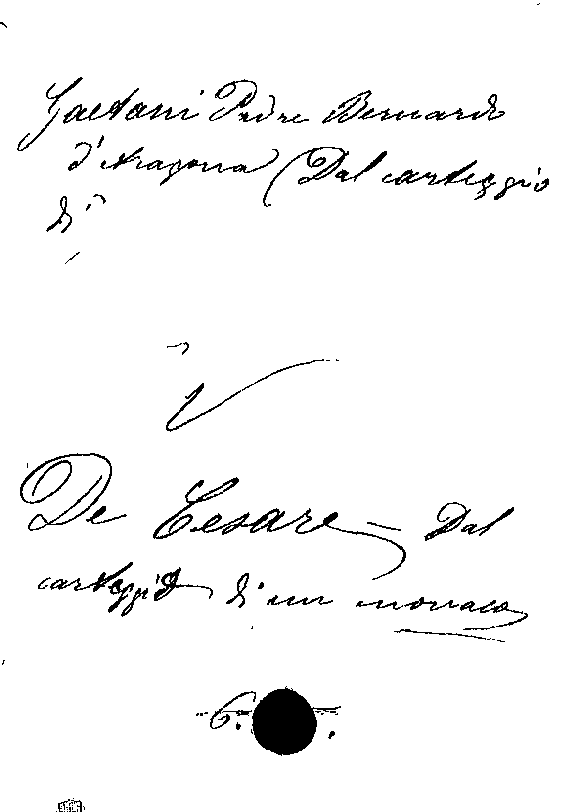 Gaetani Padre Bernardo
d'Aragona (Dal carteggio
di
V
De Cesare - Dal
carteggio di un monaco
6.